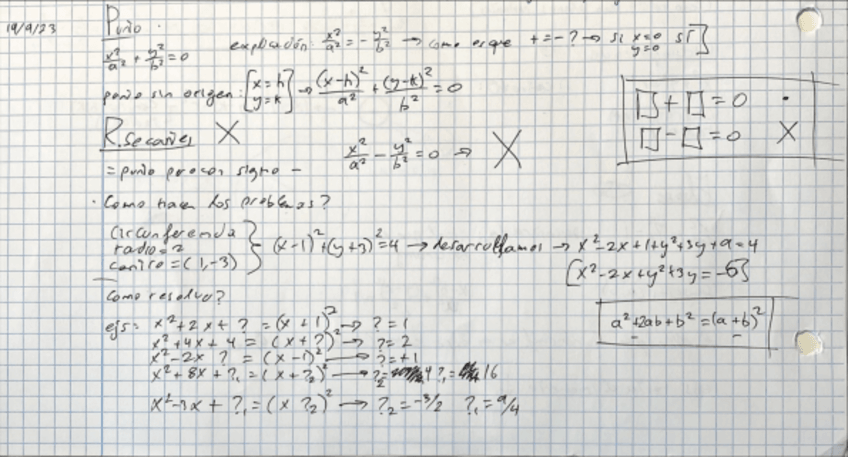 19/9/23
Punto.
x²/a² + y²/b² = 0 explicación: x²/a² = - y²/b² → como es que + = - ? → si x=0 y=0 sí]
punto sin origen: [x=h y=k] → (x-h)²/a² + (y-k)²/b² = 0
□ + □ = 0 •
□ - □ = 0 X
R. secantes X
= punto pero con signo - x²/a² - y²/b² = 0 → X
· Como hacen los problemas?
Circunferencia
radio = 2
centro = (1,-3)
} (x-1)² + (y+3)² = 4 → desarrollamos → x²-2x+1+y²+3y+9=4
[x²-2x+y²+3y=-6]
Como resolvo?
a²+2ab+b² = (a+b)²
ejs: x²+2x+? = (x+1)² → ?=1
x²+4x+4 = (x+?)² → ?=2
x²-2x ? = (x-1)² → ?=+1
x²+8x+?₁ = (x+?₂)² → ?₂= 4 ?₁= 16
x²-3x+?₁ = (x ?₂)² → ?₂=-3/2 ?₁=9/4